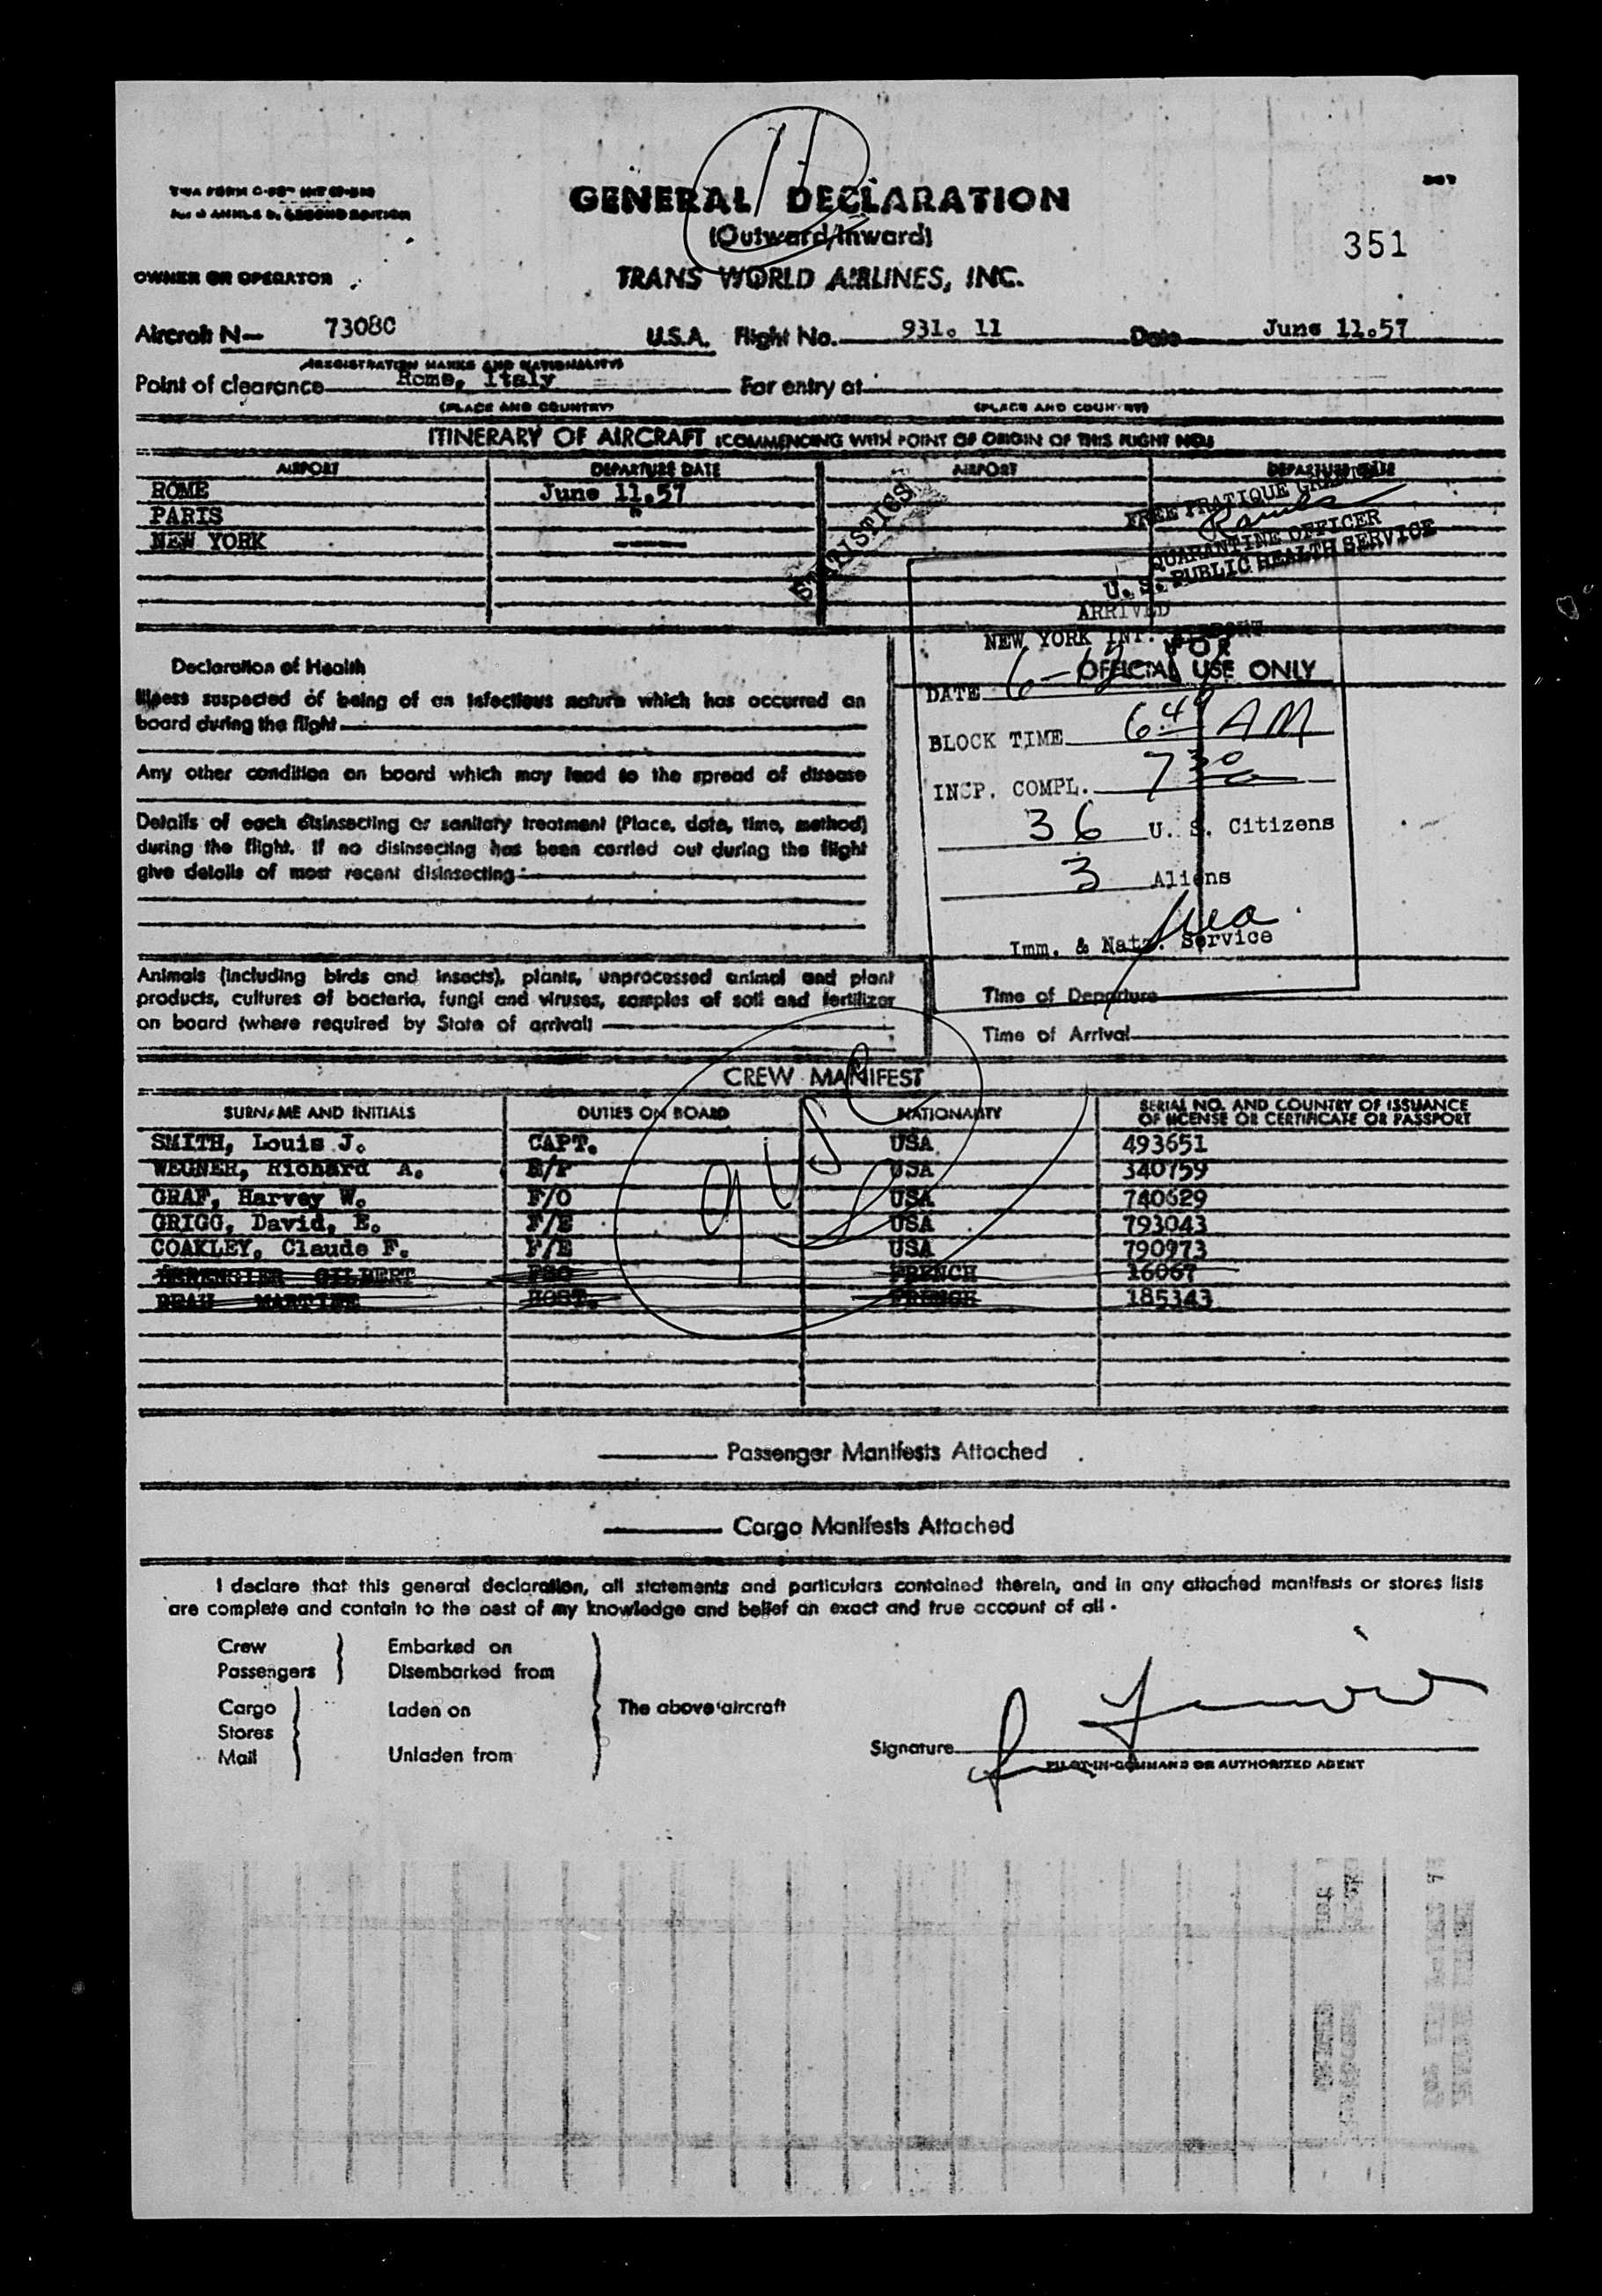 GENERAL DECLARATION
(Outward/Inward)
351
OWNER OR OPERATOR
TRANS WORLD AIRLINES, INC.
Aircraft N— 73080 U.S.A. Flight No. 931. 11 Date June 11.57
(REGISTRATION MARKS AND NATIONALITY)
Point of clearance Rome, Italy For entry at
(PLACE AND COUNTRY) (PLACE AND COUNTRY)
ITINERARY OF AIRCRAFT (COMMENCING WITH POINT OF ORIGIN OF THIS FLIGHT NO.)
AIRPORT DEPARTURE DATE AIRPORT DEPARTURE DATE
ROME June 11.57
PARIS "
NEW YORK
STATISTICS
FREE PRATIQUE GRANTED
QUARANTINE OFFICER
U. S. PUBLIC HEALTH SERVICE
ARRIVED
NEW YORK INT. AIRPORT
FOR
OFFICIAL USE ONLY
DATE 6-
BLOCK TIME 6:49 AM
INSP. COMPL. 7 30
36 U. S. Citizens
3 Aliens
Imm. & Natz. Service
Time of Departure
Time of Arrival
Declaration of Health
Illness suspected of being of an infectious nature which has occurred on
board during the flight
Any other condition on board which may lead to the spread of disease
Details of each disinsecting or sanitary treatment (Place, date, time, method)
during the flight. If no disinsecting has been carried out during the flight
give details of most recent disinsecting
Animals (including birds and insects), plants, unprocessed animal and plant
products, cultures of bacteria, fungi and viruses, samples of soil and fertilizer
on board (where required by State of arrival)
CREW MANIFEST
SURNAME AND INITIALS DUTIES ON BOARD NATIONALITY SERIAL NO. AND COUNTRY OF ISSUANCE
OF LICENSE OR CERTIFICATE OR PASSPORT
SMITH, Louis J. CAPT. USA 493651
WEGNER, Richard A. USA 340759
GRAF, Harvey W. F/O USA 740629
GRIGG, David, E. F/E USA 793043
COAKLEY, Claude F. F/E USA 790973
GILBERT FRENCH 16067
MARTINE HOST. FRENCH 185343
Passenger Manifests Attached
Cargo Manifests Attached
I declare that this general declaration, all statements and particulars contained therein, and in any attached manifests or stores lists
are complete and contain to the best of my knowledge and belief an exact and true account of all.
Crew Embarked on
Passengers Disembarked from
Cargo Laden on The above aircraft
Stores
Mail Unladen from
Signature
PILOT-IN-COMMAND OR AUTHORIZED AGENT